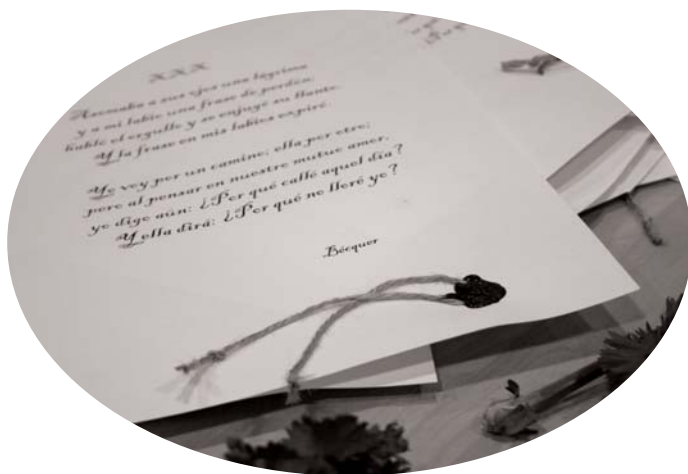 XXX
Asomaba a sus ojos una lágrima
y a mi labio una frase de perdón;
habló el orgullo y se enjugó su llanto
Y la frase en mis labios expiró.
Yo voy por un camino; ella por otro;
pero al pensar en nuestro mutuo amor,
yo digo aún: ¿Por qué callé aquel día?
Y ella dirá: ¿Por qué no lloré yo?
Bécquer